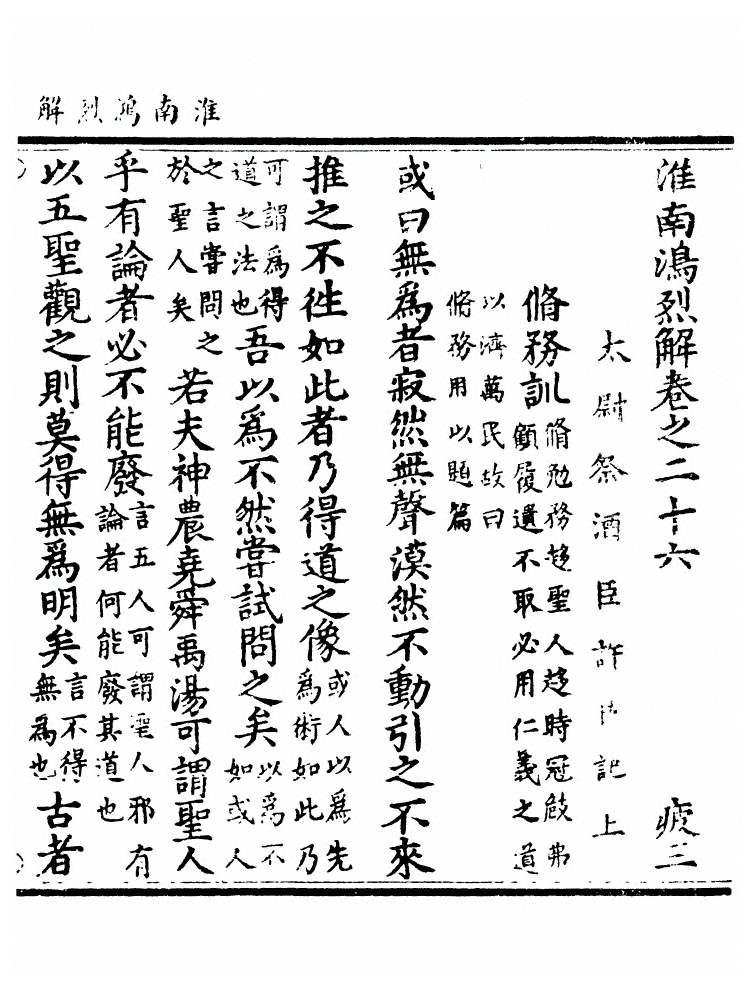 淮南鴻烈解
淮南鴻烈解卷之二十六　疲三
太尉祭酒臣許　記上
脩務訓 脩勉務趍聖人趍時冠攲弗顧履遺不取必用仁義之道
以濟萬民故曰脩務用以題篇
或曰無爲者寂然無聲漠然不動引之不來
推之不徃如此者乃得道之像 或人以爲先爲術如此乃
可謂爲得道之法也 吾以爲不然嘗試問之矣 以爲不如或人
之言嘗問之於聖人矣 若夫神農堯舜禹湯可謂聖人
乎有論者必不能廢 言五人可謂聖人邪有論者何能廢其道也
以五聖觀之則莫得無爲明矣 言不得無爲也 古者